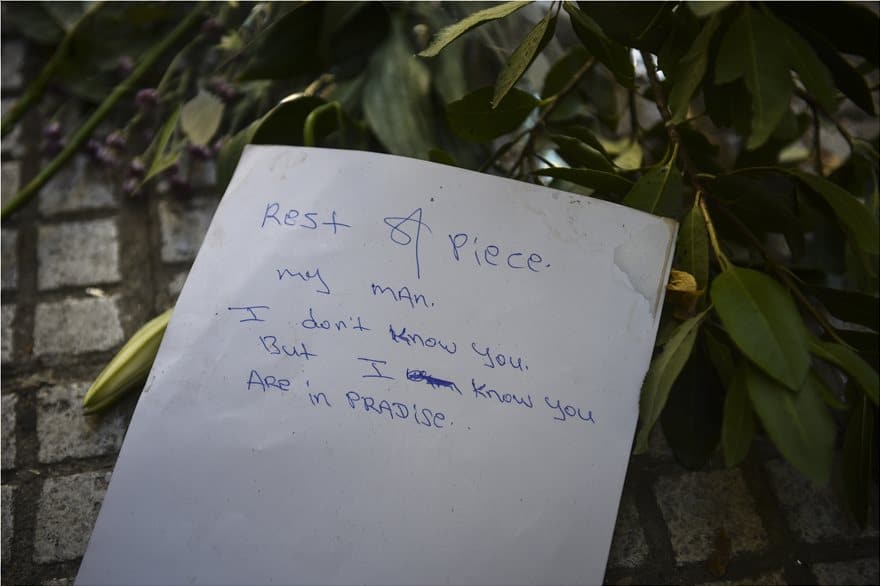 Rest & Piece.
my man.
I don't know you.
But I know you
Are in PRADise..